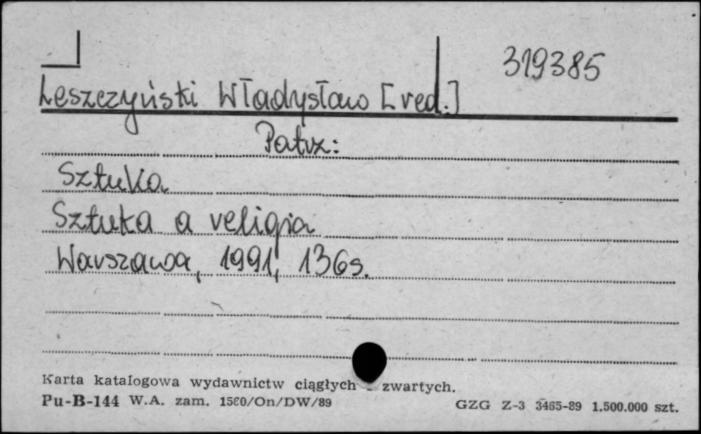 319385
Leszczyński Władysław [red.]
Patrz:
Sztuka
Sztuka a religia
Warszawa, 1991, 136s.
Karta katalogowa wydawnictw ciągłych - zwartych.
Pu-B-144 W.A. zam. 1580/On/DW/89 GZG Z-3 3465-89 1.500.000 szt.